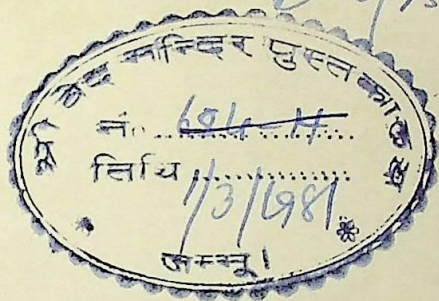 श्री वेद मन्दिर पुस्तकालय
नं. 684-H
तिथि 1/3/1981
जम्मू।